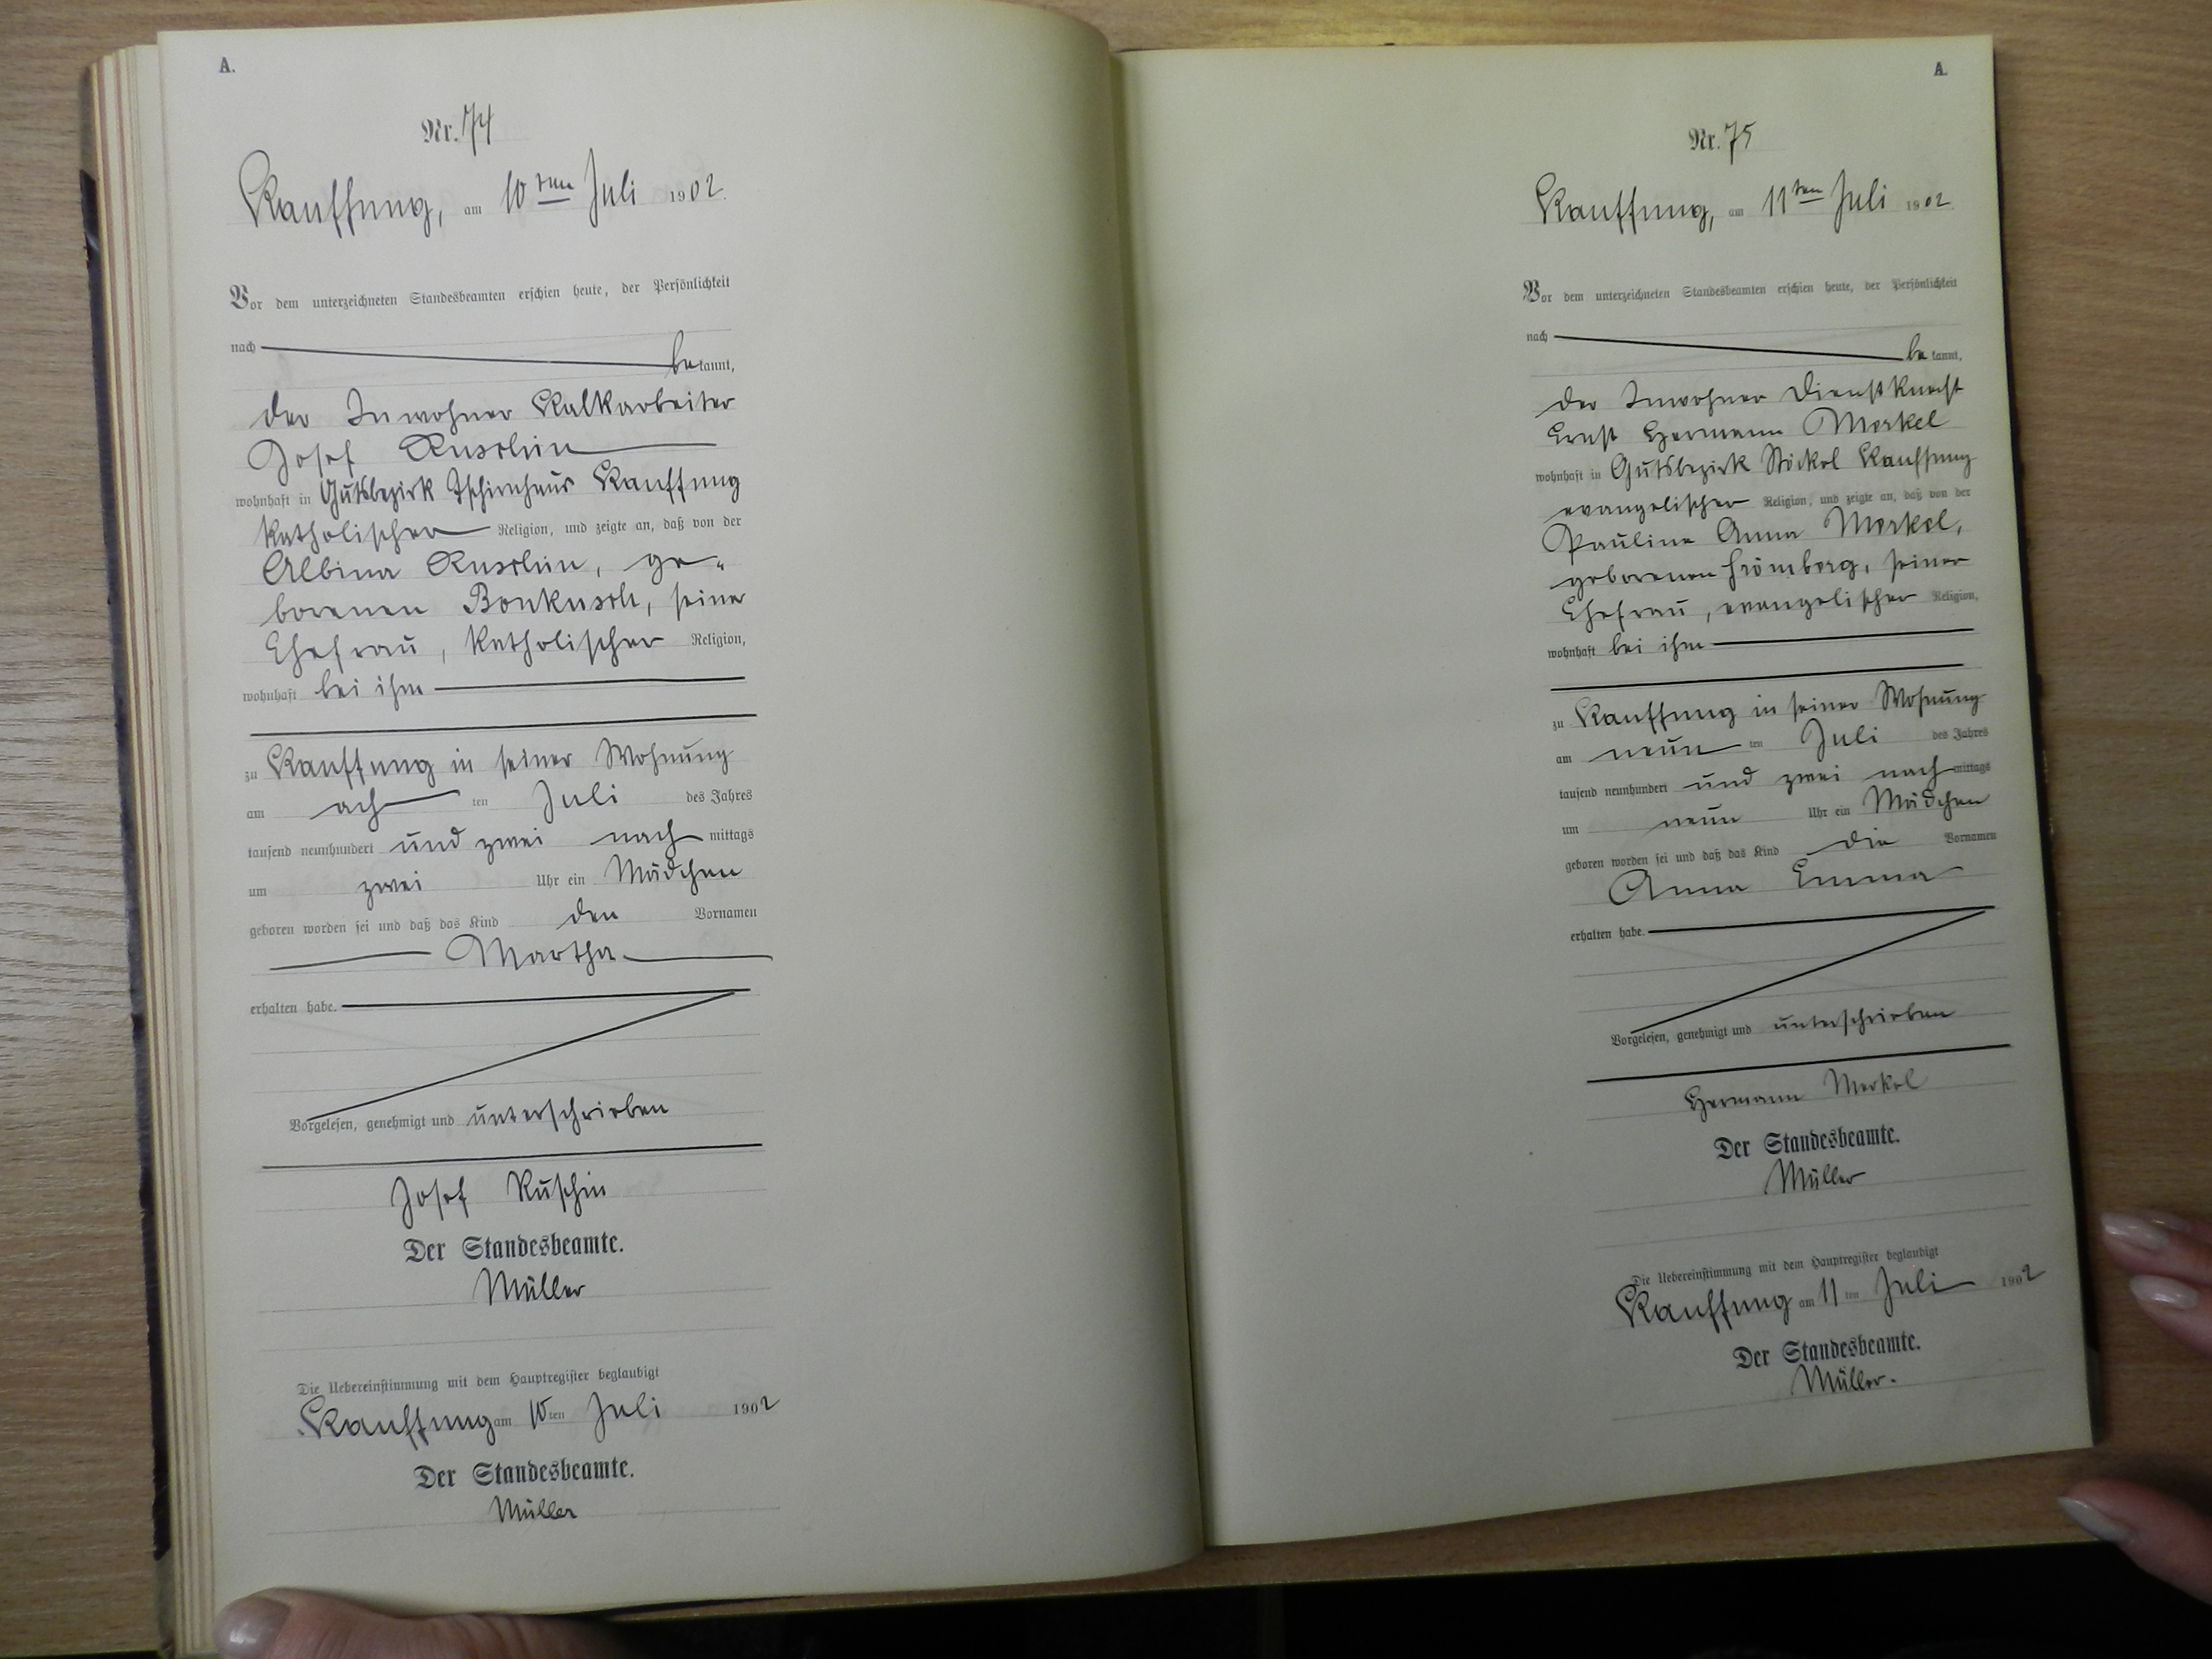 A.
Nr. 74
Kauffung, am 10ten Juli 1902.
Vor dem unterzeichneten Standesbeamten erschien heute, der Persönlichkeit
nach bekannt,
der Inwohner Kalkarbeiter
Josef
wohnhaft in Gutsbezirk Tschirnhaus Kauffung
katholischer Religion, und zeigte an, daß von der
Albina ge-
borenen seiner
Ehefrau, katholischer Religion,
wohnhaft bei ihm
zu Kauffung in seiner Wohnung
am ach ten Juli des Jahres
tausend neunhundert und zwei nachmittags
um zwei Uhr ein Mädchen
geboren worden sei und daß das Kind den Vornamen
Martha
erhalten habe.
Vorgelesen, genehmigt und unterschrieben
Josef Ruschin
Der Standesbeamte.
Müller
Die Uebereinstimmung mit dem Hauptregister beglaubigt
Kauffung am 10ten Juli 1902
Der Standesbeamte.
Müller
A.
Nr. 75
Kauffung, am 11ten Juli 1902.
Vor dem unterzeichneten Standesbeamten erschien heute, der Persönlichkeit
nach bekannt,
der Inwohner Dienstknecht
Ernst Hermann Merkel
wohnhaft in Gutsbezirk Stöckel Kauffung
evangelischer Religion, und zeigte an, daß von der
Pauline Anna Merkel,
geborenen Frömberg, seiner
Ehefrau, evangelischer Religion,
wohnhaft bei ihm
zu Kauffung in seiner Wohnung
am neun ten Juli des Jahres
tausend neunhundert und zwei nachmittags
um neun Uhr ein Mädchen
geboren worden sei und daß das Kind die Vornamen
Anna Emma
erhalten habe.
Vorgelesen, genehmigt und unterschrieben
Hermann Merkel
Der Standesbeamte.
Müller
Die Uebereinstimmung mit dem Hauptregister beglaubigt
Kauffung am 11ten Juli 1902
Der Standesbeamte.
Müller.